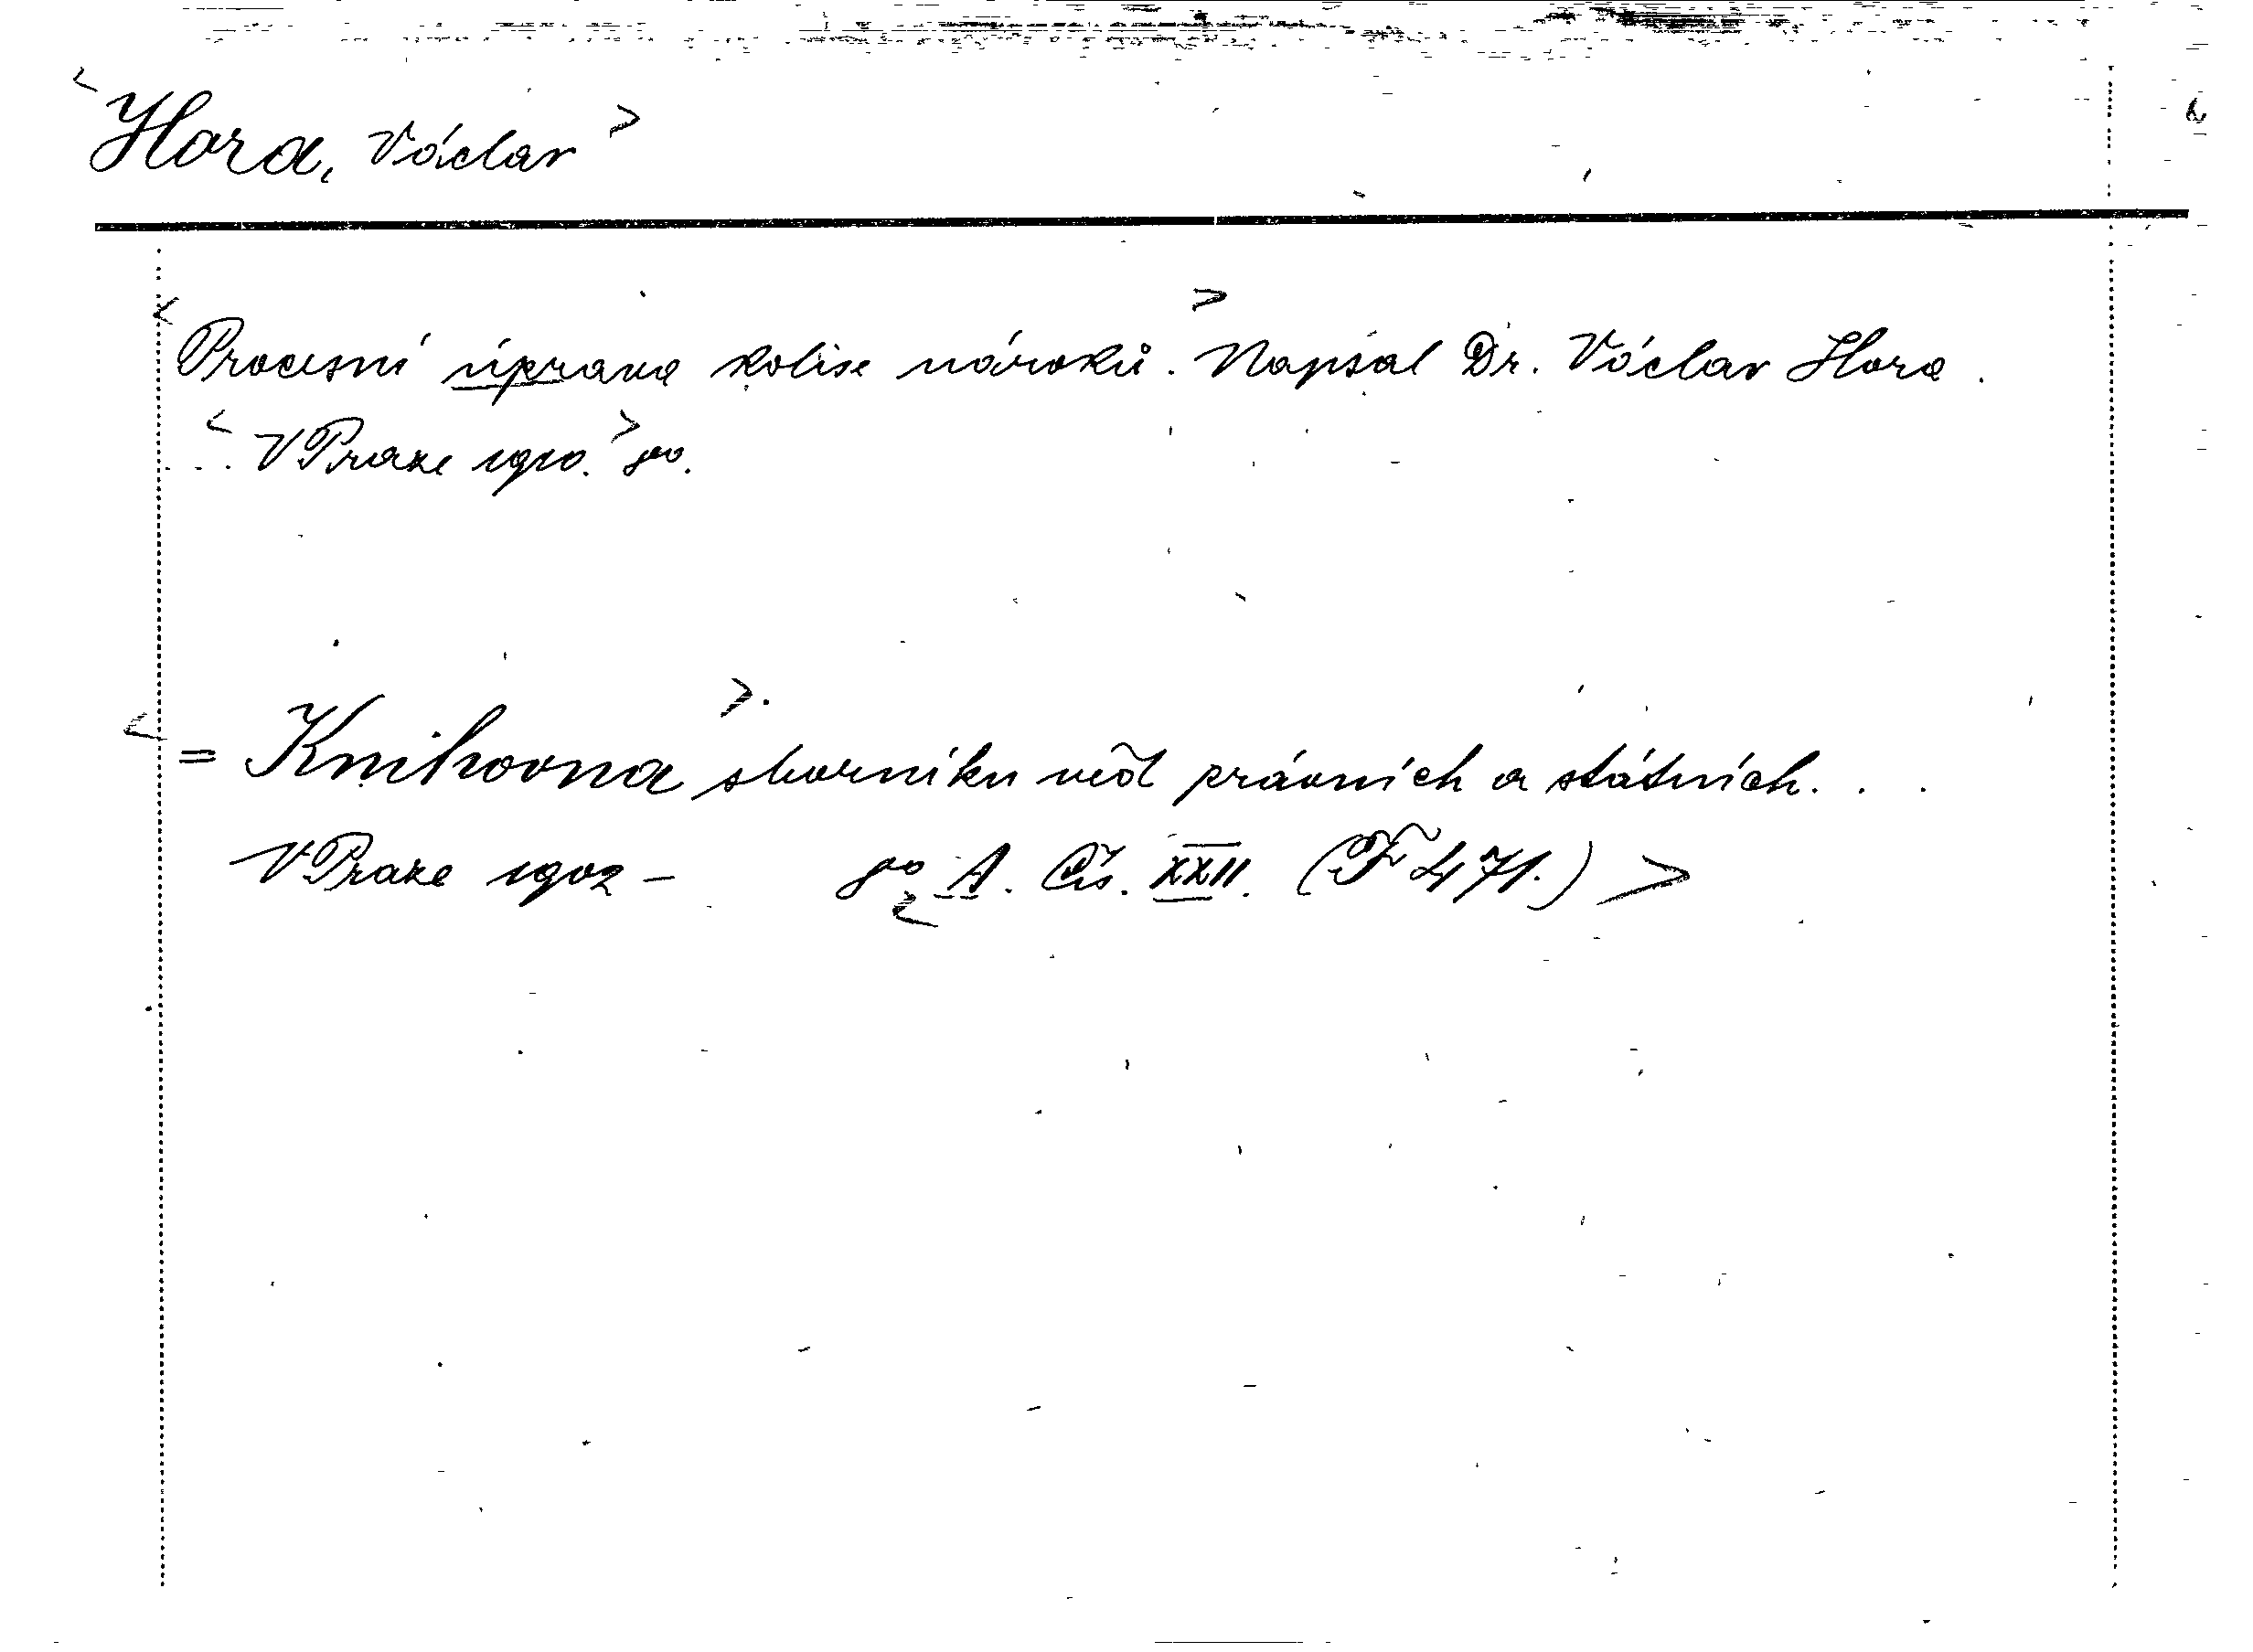 <Hora, Václav>
<Procesní úprava kolise nároků.> Napsal Dr. Václav Hora.
... <V Praze 1910.> 8vo.
<= Knihovna>. sborníku věd právních a státních...
V Praze 1902 - 8vo <A. Čís. XXII. (F 471.)>